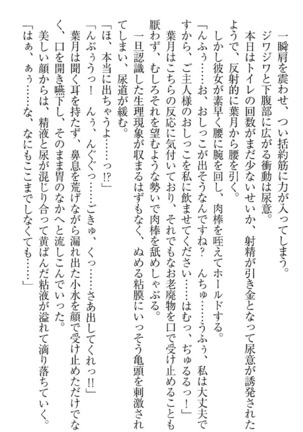 一瞬肩を震わせ、つい括約筋に力が入ってしまう。
ジワジワと下腹部に広がる衝動は尿意。
本日はトイレの回数がまだ少ないせいか、射精が引き金となって尿意が誘発された
ようで、反射的に葉月から腰を引く。
しかし彼女が素早く腰に腕を回し、肉棒を咥えてホールドする。
「んふぅ……お、おしっこが出そうなんですね？　んちゅ……うふぅ、私は大丈夫で
すから、ご主人様のおしっこを私に飲ませてください……はむっ、ぢゅるるっ！」
葉月はこちらの反応に気付いており、それでもなお老廃物を口で受け止めることも
厭わず、むしろそれを望むような勢いで肉棒を舐めしゃぶる。
一旦認識した生理現象が収まるはずもなく、ぬめる粘膜にいっそう亀頭を刺激され
てしまい、尿道が緩む。
「ほ、本当に出ちゃうよ……っ!?」
「んぶぅうっ！　んっ、んぐくっ……ごきゅ、くっ……さあ出してくれっ!!」
葉月は聞く耳を持たず、鼻息を荒げながら漏れ出た小水を顔で受け止めただけでな
く、口を開き嚥下し、そのまま胃のなかへと流しこんでいった。
美しい顔からは、精液と尿が混じり合って黄ばんだ粘液が溢れて滴り落ちていく。
「はぁ、ぁぅ……な、なにもここまでしなくても……」